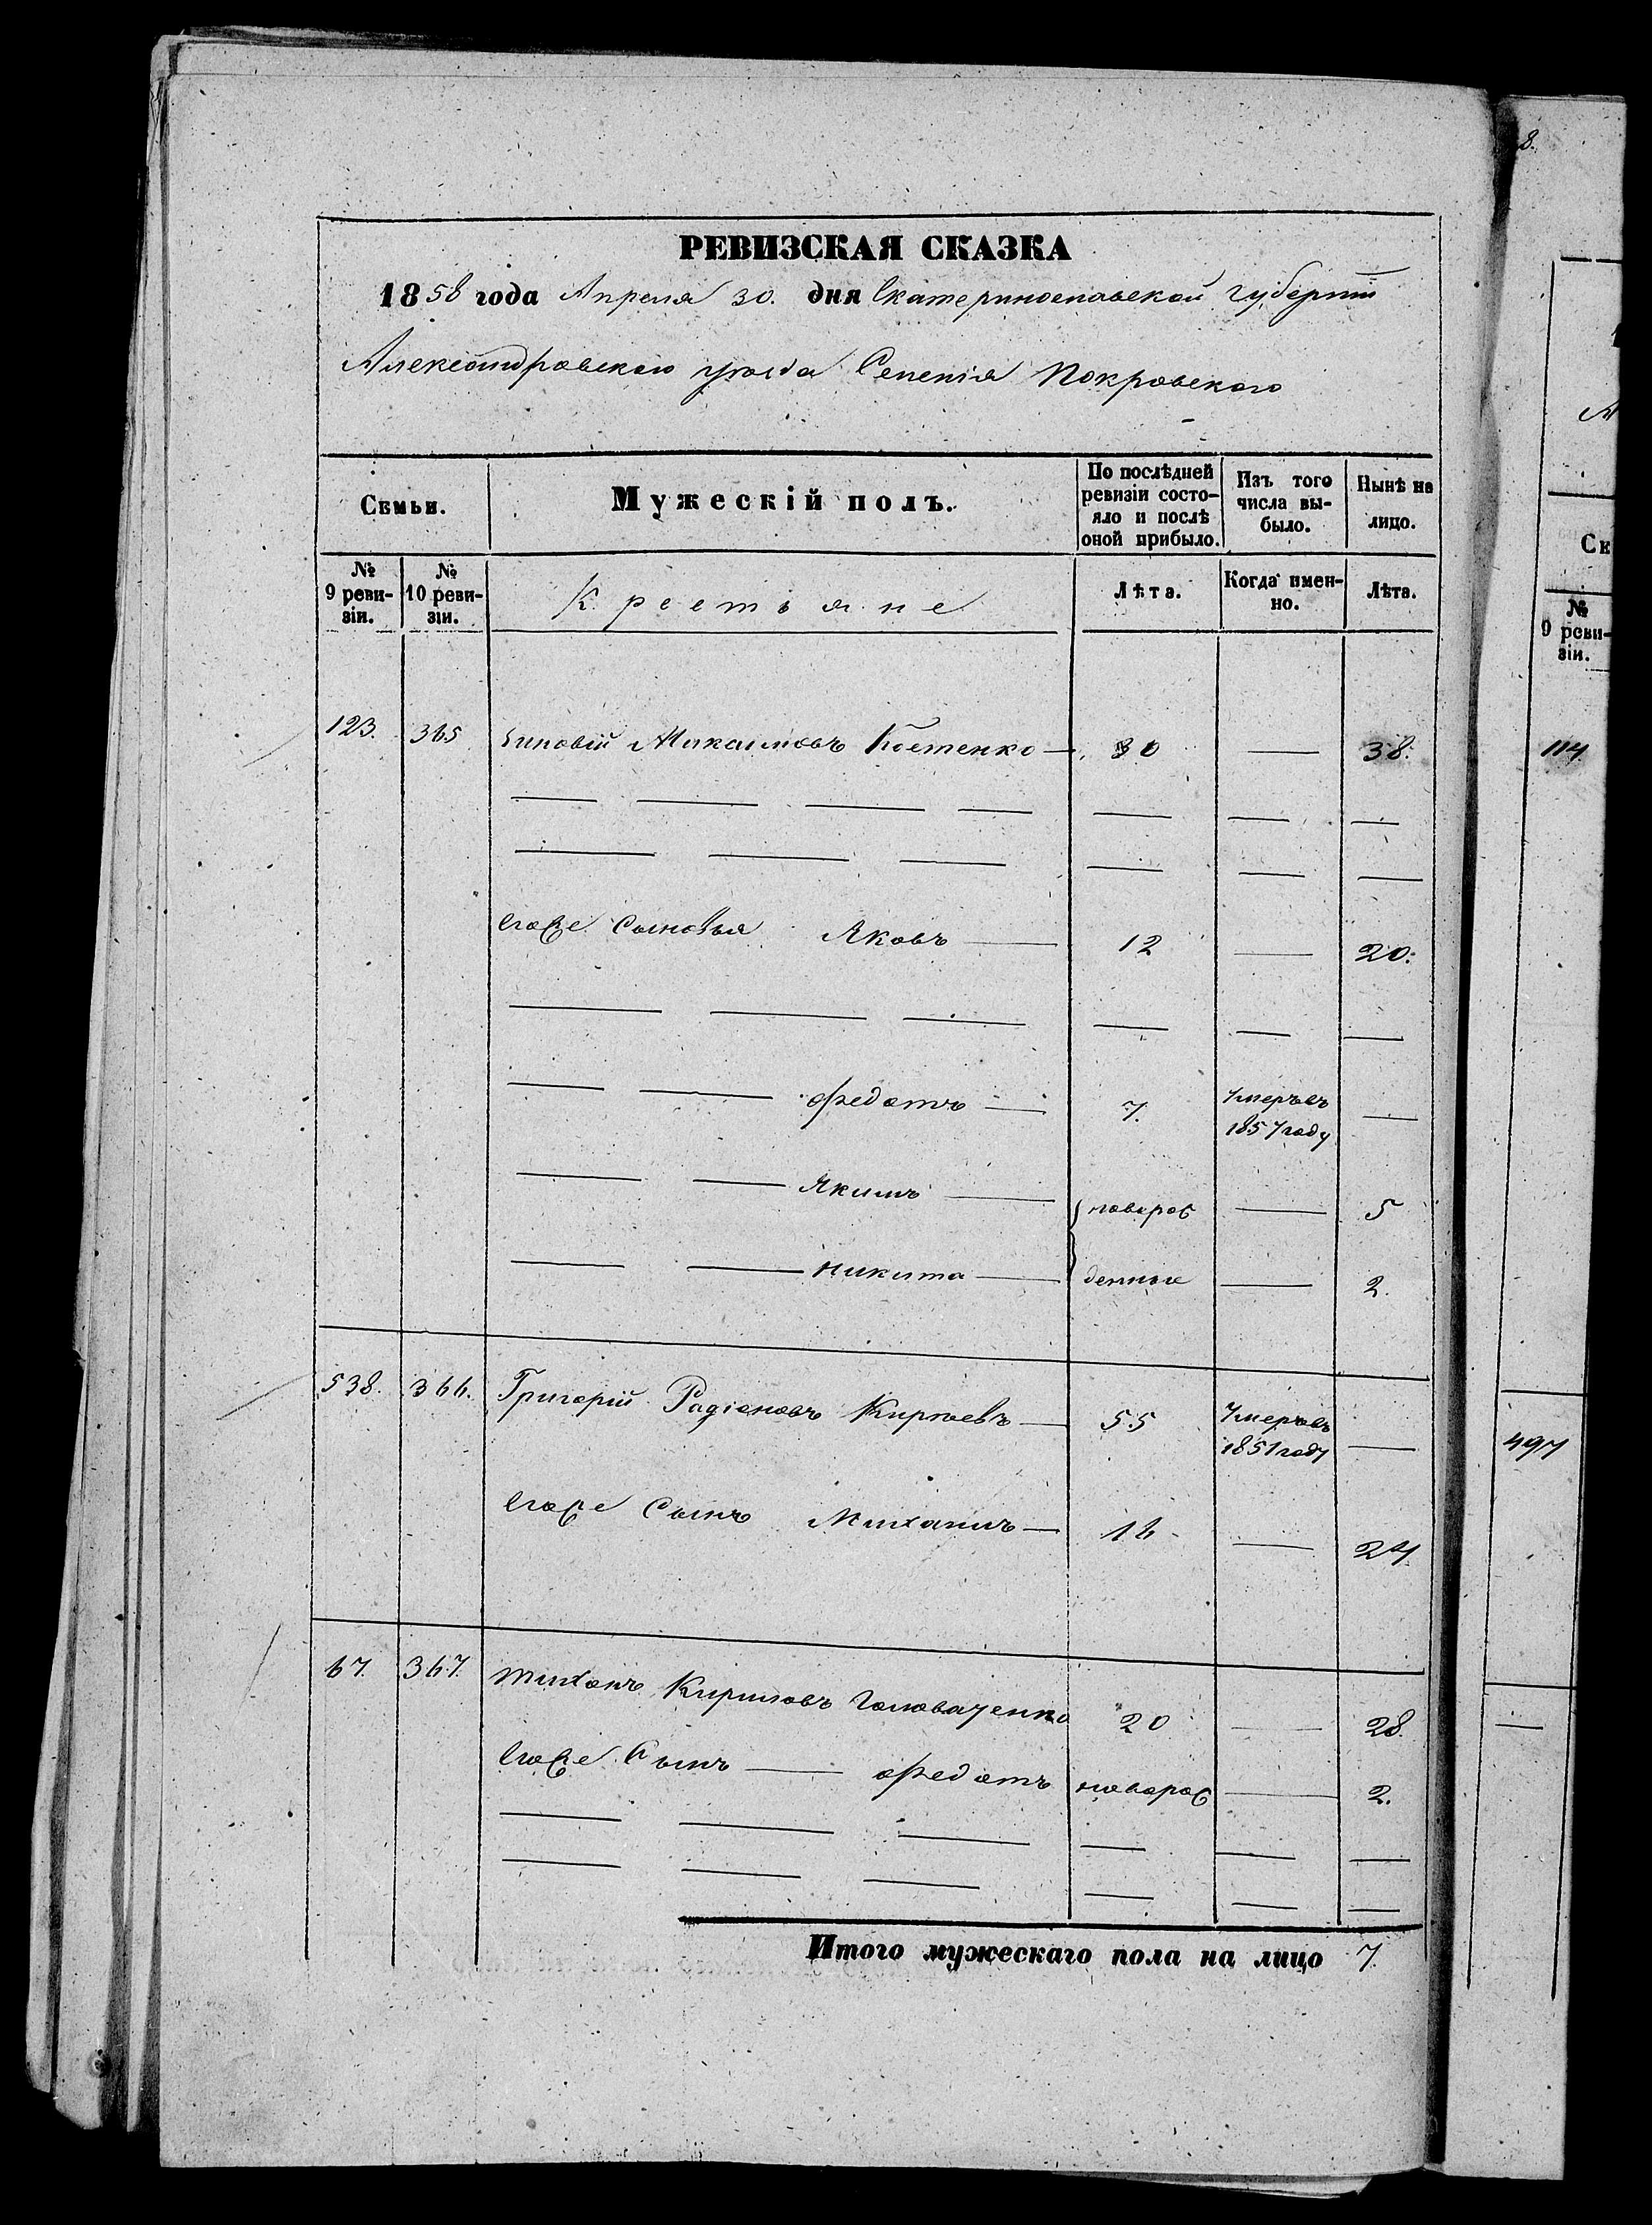 РЕВИЗСКАЯ СКАЗКА
1858 года Апреля 30. дня Екатеринославской Губерніи
Александровскаго уѣзда Селенія Покровского
Семьи.
Мужескій полъ.
По послѣдней ревизіи состо-
яло и послѣ
оной прибыло.
Изъ того
числа вы-
было.
Нынѣ на
лицо.
№
9 реви-
зіи.
№
10 реви-
зіи.
Крестьяне
Лѣта.
Когда имен-
но.
Лѣта.
123. 365 Зиновій Максимовъ Костенко 30 — 38.
Егоже Сыновья Яковъ 12 — 20.
Федотъ 7. Умеръ въ
1857 году
Якимъ новорож — 5
Никита денные — 2.
538. 366. Григорій Радіоновъ Киріевъ 55 Умеръ въ
1851 году
Егоже Сынъ Михаилъ 16 — 24
67. 367. Тихонъ Кириловъ Головаченко 20 — 28.
Егоже Сынъ Федотъ новорож — 2.
Итого мужескаго пола на лицо 7.
8.
Се
№
9 реви-
зіи.
114
497